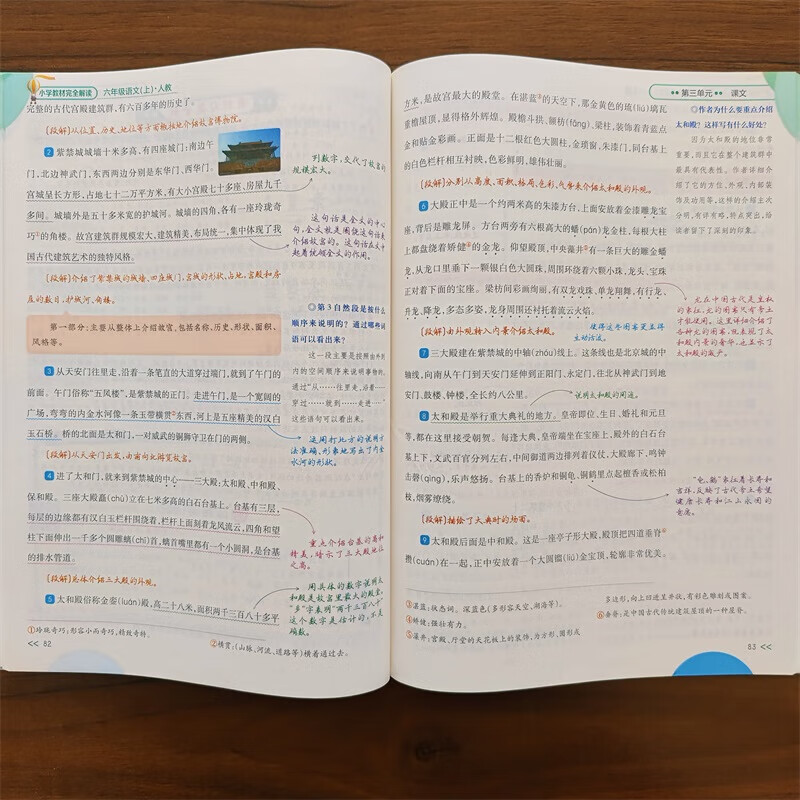 小学教材完全解读 六年级语文(上)·人教
完整的古代宫殿建筑群,有六百多年的历史了。
[段解]从位置、历史、地位等方面概括地介绍故宫博物院。
2 紫禁城城墙十米多高,有四座城门:南边午
门,北边神武门,东西两边分别是东华门、西华门。
宫城呈长方形,占地七十二万平方米,有大小宫殿七十多座、房屋九千
多间。城墙外是五十多米宽的护城河。城墙的四角,各有一座玲珑奇
巧①的角楼。故宫建筑群规模宏大,建筑精美,布局统一,集中体现了我
国古代建筑艺术的独特风格。
[段解]介绍了紫禁城的城墙、四座城门、宫城的形状、占地、宫殿和房
屋的数目,护城河、角楼。
第一部分:主要从整体上介绍故宫,包括名称、历史、形状、面积、
风格等。
3 从天安门往里走,沿着一条笔直的大道穿过端门,就到了午门的
前面。午门俗称“五凤楼”,是紫禁城的正门。走进午门,是一个宽阔的
广场,弯弯的内金水河像一条玉带横贯②东西,河上是五座精美的汉白
玉石桥。桥的北面是太和门,一对威武的铜狮守卫在门的两侧。
[段解]从天安门出发,由南向北游览故宫。
4 进了太和门,就来到紫禁城的中心——三大殿:太和殿、中和殿、
保和殿。三座大殿矗(chù)立在七米多高的白石台基上。台基有三层,
每层的边缘都有汉白玉栏杆围绕着,栏杆上面刻着龙凤流云,四角和望
柱下面伸出一千多个圆雕螭(chī)首,螭首嘴里都有一个小圆洞,是台基
的排水管道。
[段解]总体介绍三大殿的外观。
5 太和殿俗称金銮(luán)殿,高二十八米,面积两千三百八十多平
①玲珑奇巧:形容小而奇巧,精致奇特。
②横贯:(山脉、河流、道路等)横着通过去。
<< 82
列数字,交代了故宫的
规模宏大。
这句话是全文的中心
句,全文就是围绕这句话来
介绍故宫的。这句话在文中
起着统领全文的作用。
◎第3自然段是按什么
顺序来说明的?通过哪些词
语可以看出来?
这一段主要是按照由外到
内的空间顺序来说明事物的,
通过“从……往里走,沿着……
穿过……就到……走进……”
这些语句可以看出来。
运用打比方的说明方
法准确、形象地写出了内金
水河的形状。
重点介绍台基的高和
精美,暗示了三大殿地位
之高。
用具体的数字说明太
和殿是故宫里最大的殿堂。
“多”字表明“两千三百八十”
这个数字是估计的,不是
确数。
第三单元 课文
方米,是故宫最大的殿堂。在湛蓝③的天空下,那金黄色的琉(liú)璃瓦
重檐殿顶,显得格外辉煌。殿檐斗拱、额枋(fāng)、梁柱,装饰着青蓝点
金和贴金彩画。正面是十二根红色大圆柱,金琐窗,朱漆门,同台基上
的白色栏杆相互衬映,色彩鲜明,雄伟壮丽。
[段解]分别从高度、面积、格局、色彩、气势来介绍太和殿的外观。
6 大殿正中是一个约两米高的朱漆方台,上面安放着金漆雕龙宝
座,背后是雕龙屏。方台两旁有六根高大的蟠(pán)龙金柱,每根大柱
上都盘绕着矫健④的金龙。仰望殿顶,中央藻井⑤有一条巨大的雕金蟠
龙,从龙口里垂下一颗银白色大圆珠,周围环绕着六颗小珠,龙头、宝珠
正对着下面的宝座。梁枋间彩画绚丽,有双龙戏珠、单龙翔舞,有行龙、
升龙、降龙,多态多姿,龙身周围还衬托着流云火焰。
[段解]由外观转入内景介绍太和殿。
使得这些图案更显得
生动活泼。
7 三大殿建在紫禁城的中轴(zhóu)线上。这条线也是北京城的中
轴线,向南从午门到天安门延伸到正阳门、永定门,往北从神武门到地
安门、鼓楼、钟楼,全长约八公里。
说明太和殿的用途。
8 太和殿是举行重大典礼的地方。皇帝即位、生日、婚礼和元旦
等,都在这里接受朝贺。每逢大典,皇帝端坐在宝座上,殿外的白石台
基上下,文武百官分列左右,中间御道两边排列着仪仗,大殿廊下,鸣钟
击磬(qìng),乐声悠扬。台基上的香炉和铜龟、铜鹤里点起檀香或松柏
枝,烟雾缭绕。
[段解]描绘了大典时的场面。
9 太和殿后面是中和殿。这是一座亭子形大殿,殿顶把四道垂脊⑥
攒(cuán)在一起,正中安放着一个大圆鎏(liú)金宝顶,轮廓非常优美。
③湛蓝:状态词。深蓝色(多形容天空、湖海等)。
④矫健:强壮有力。
⑤藻井:宫殿、厅堂的天花板上的装饰,为方形、圆形或
多边形,向上凹进呈井状,有彩色雕刻或图案。
⑥垂脊:是中国古代传统建筑屋顶的一种屋脊。
◎作者为什么要重点介绍
太和殿?这样写有什么好处?
因为太和殿的地位非常
重要,而且它在整个建筑群中
最具有代表性。作者详细介
绍了它的方位、外观、内部装
饰及功用等,这样的介绍主次
分明,有详有略,特点突出,给
读者留下了深刻的印象。
龙在中国古代是皇权
的象征,龙的图案只有帝王
才能使用。这里详细介绍了
各种龙的图案,既表现了太
和殿内景的奢华,也显示了
太和殿的威严。
“龟、鹤”象征着长寿和
吉祥,反映了古代帝王希望
健康长寿和江山永固的
意高。
83 <<